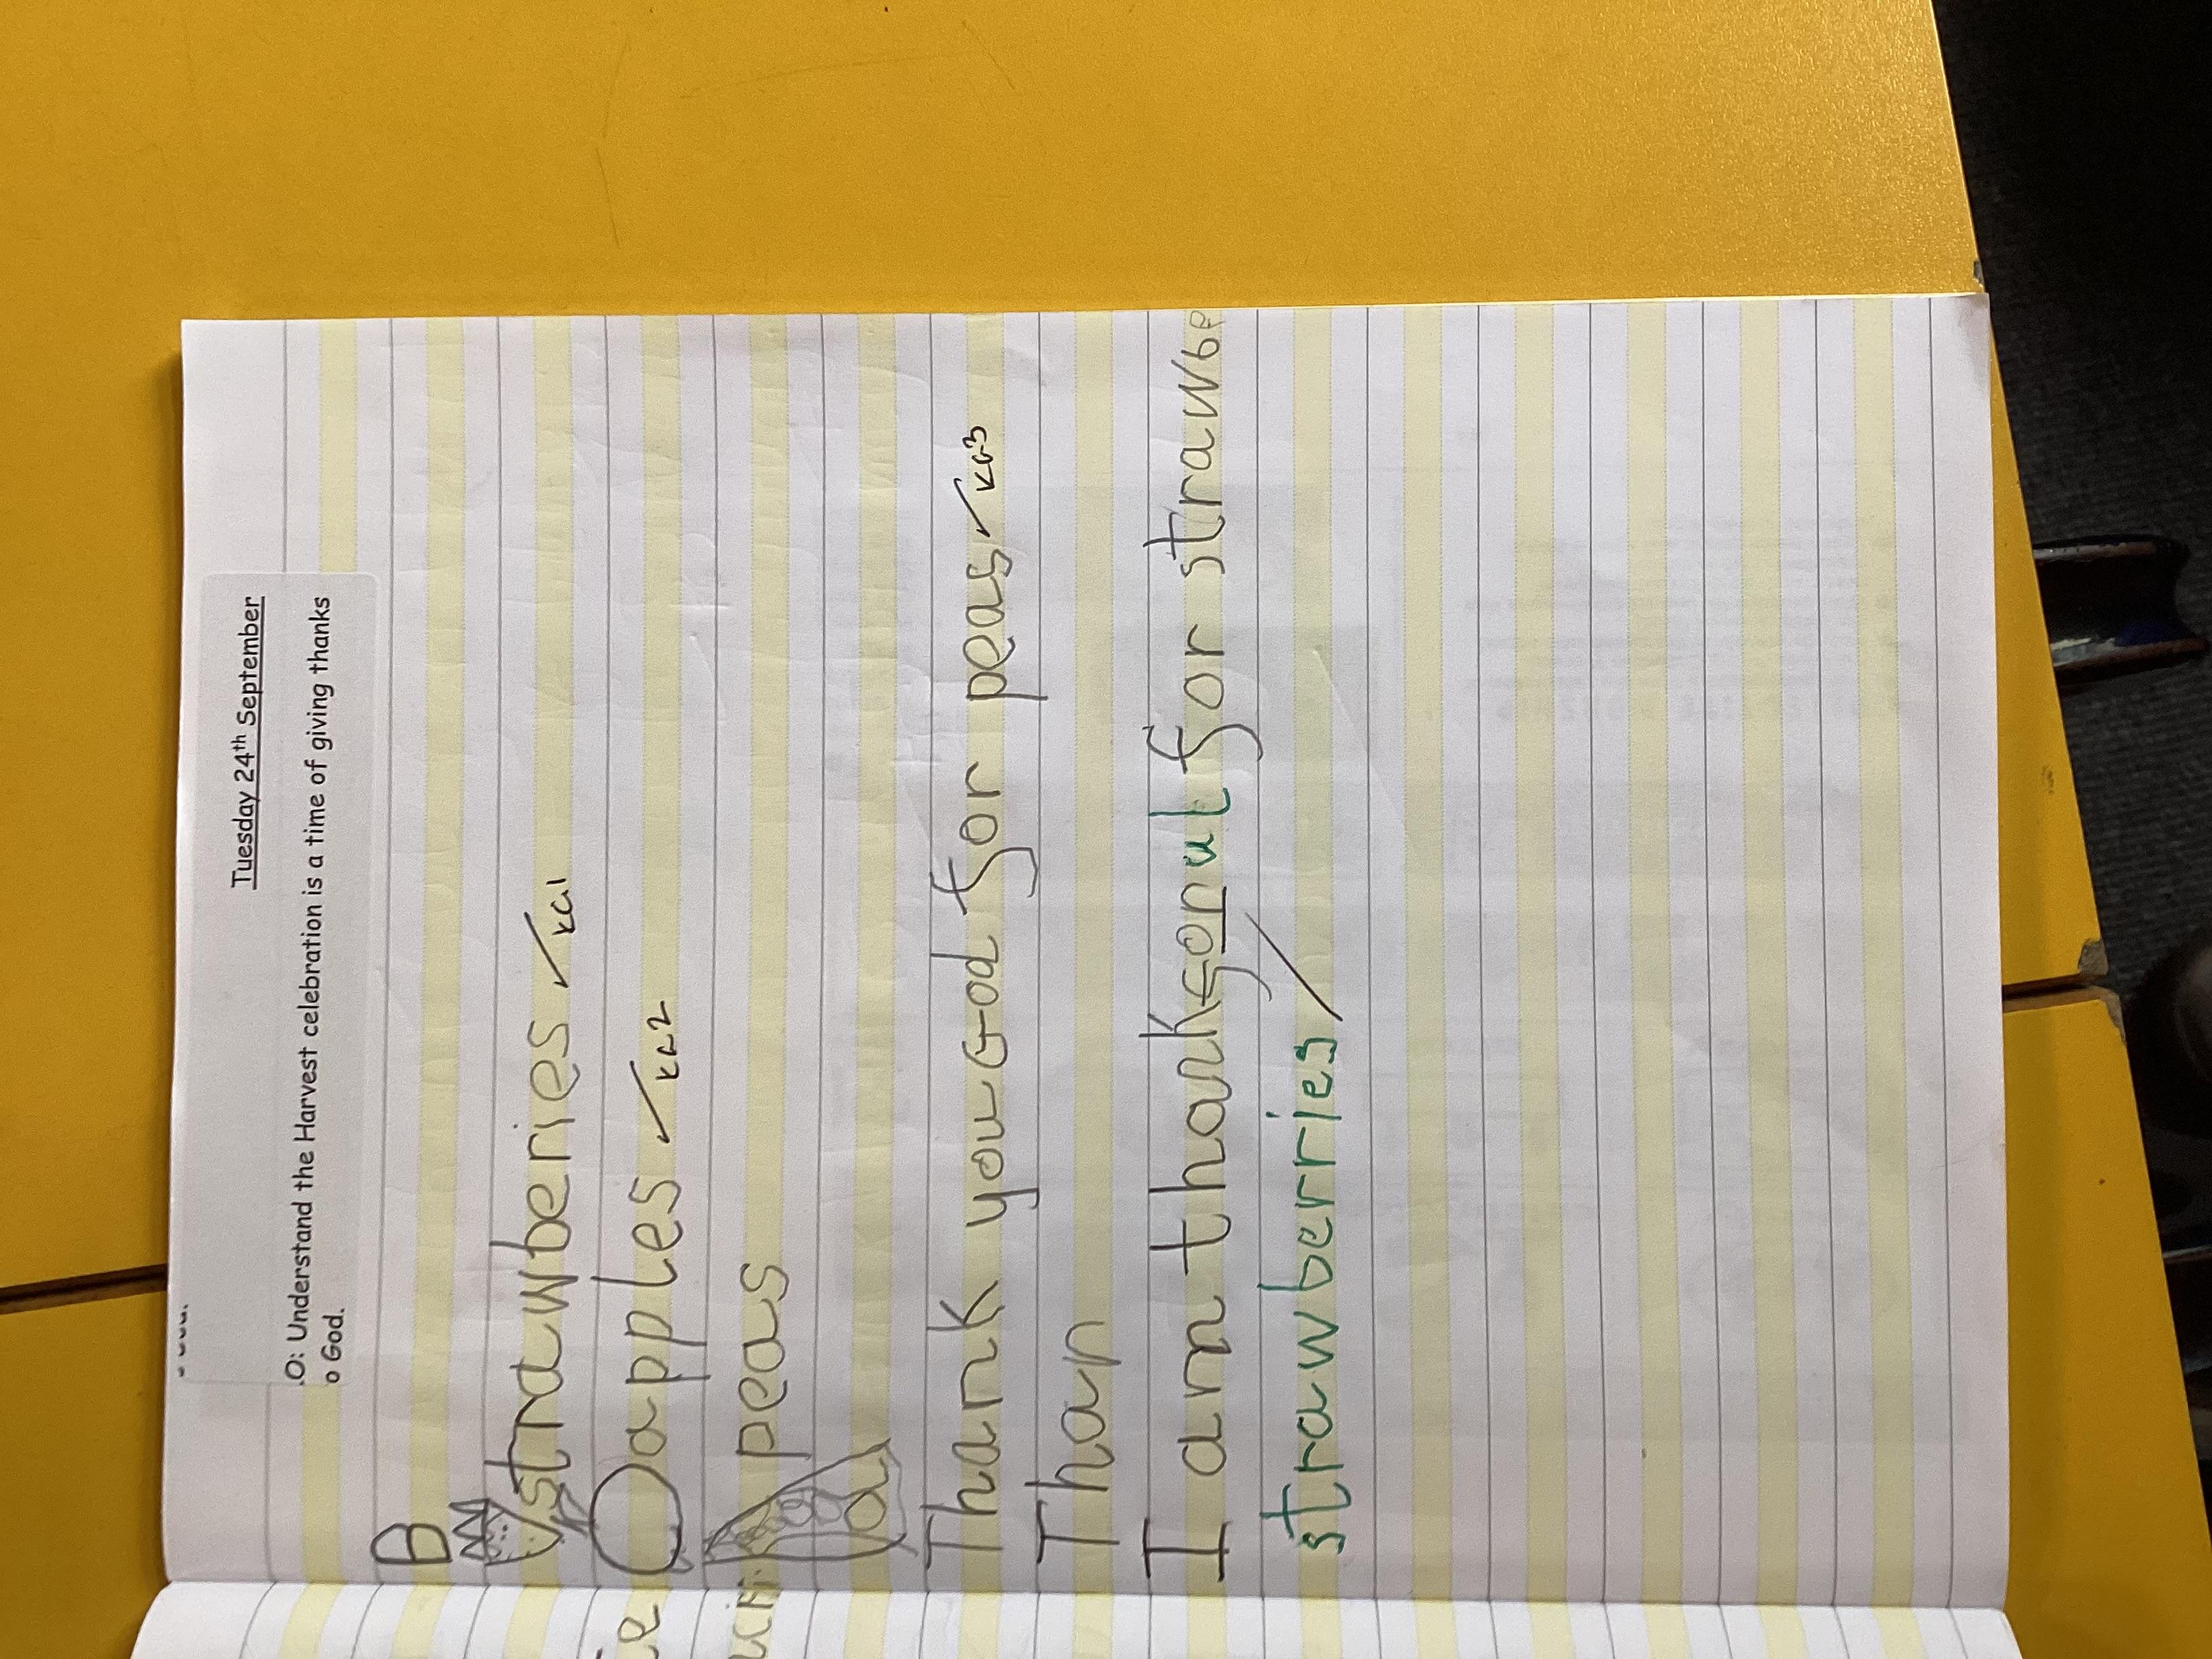 Tuesday 24th September
.O: Understand the Harvest celebration is a time of giving thanks
o God.
B
strawberies KG1
apples KG2
peas
Thank you God for peas KG3
Than
I am thankforul for strawbe
strawberries